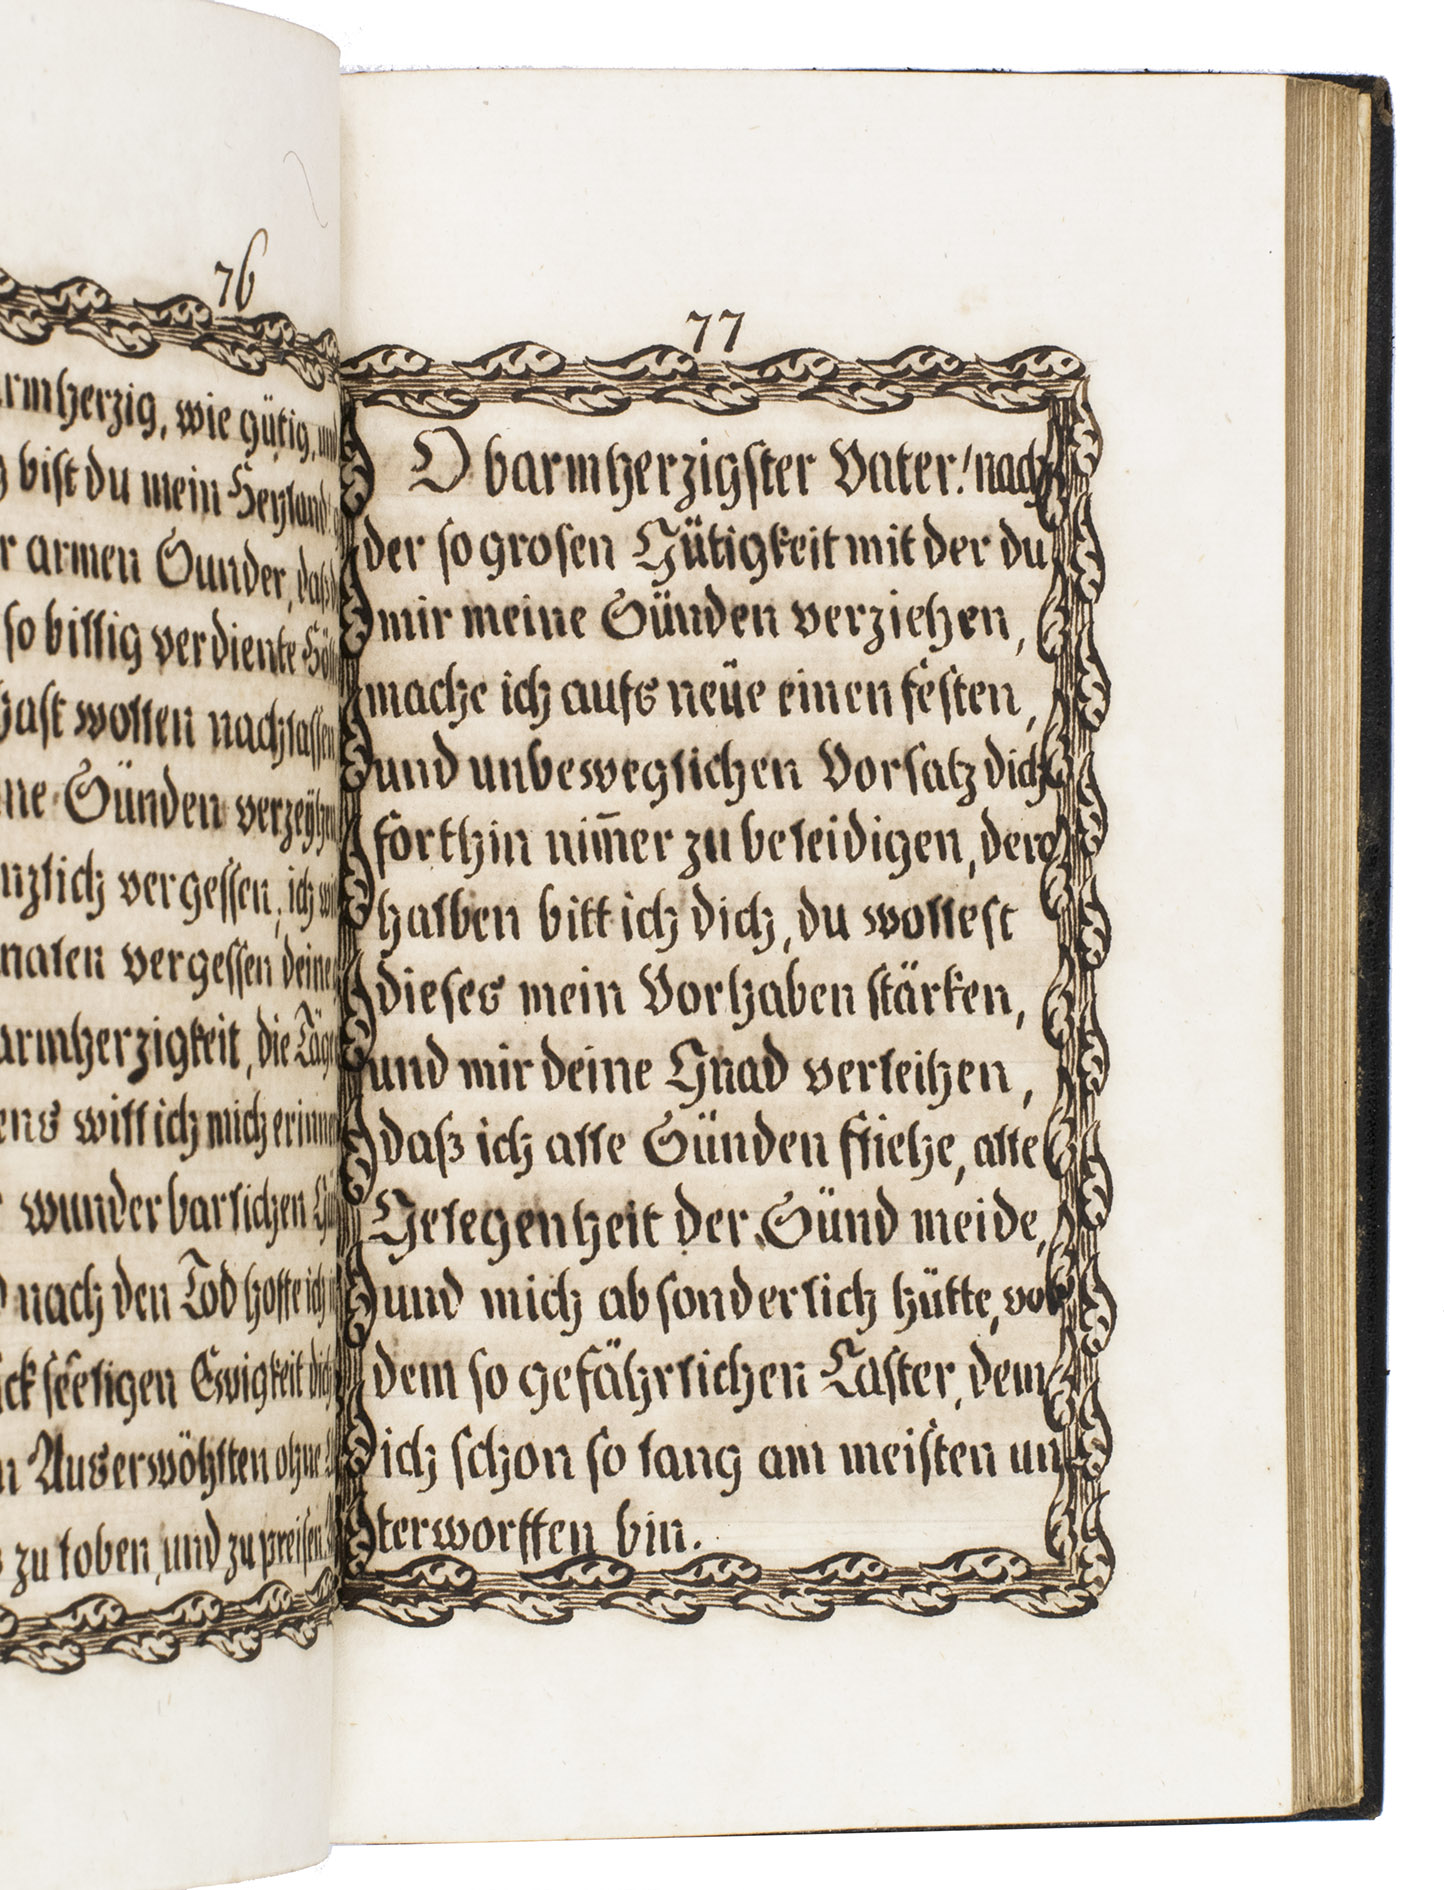 76
wie gütig,
bist du mein Heyland
armen Sunder, daß
so billig verdiente
hast wollen nachlassen
Sünden verzeyhen
vergessen, ich
vergessen deine
die
will ich mich erinnern
wunderbarlichen
nach den Tod hoffe ich
seeligen Ewigkeit dich
Auserwöhlten ohne
zu loben, und zu preisen.
77
O barmherzigster Vater! nach
der so grosen Gütigkeit mit der du
mir meine Sünden verziehen,
mache ich aufs neüe einen festen,
und unbeweglichen Vorsatz dich
forthin nim̄er zu beleidigen, dero
halben bitt ich dich, du wollest
dieses mein Vorhaben stärken,
und mir deine Gnad verleihen,
daß ich alle Sünden fliehe, alle
Gelegenheit der Sünd meide,
und mich absonderlich hütte, vor
dem so gefährlichen Laster, dem
ich schon so lang am meisten un
terworffen bin.